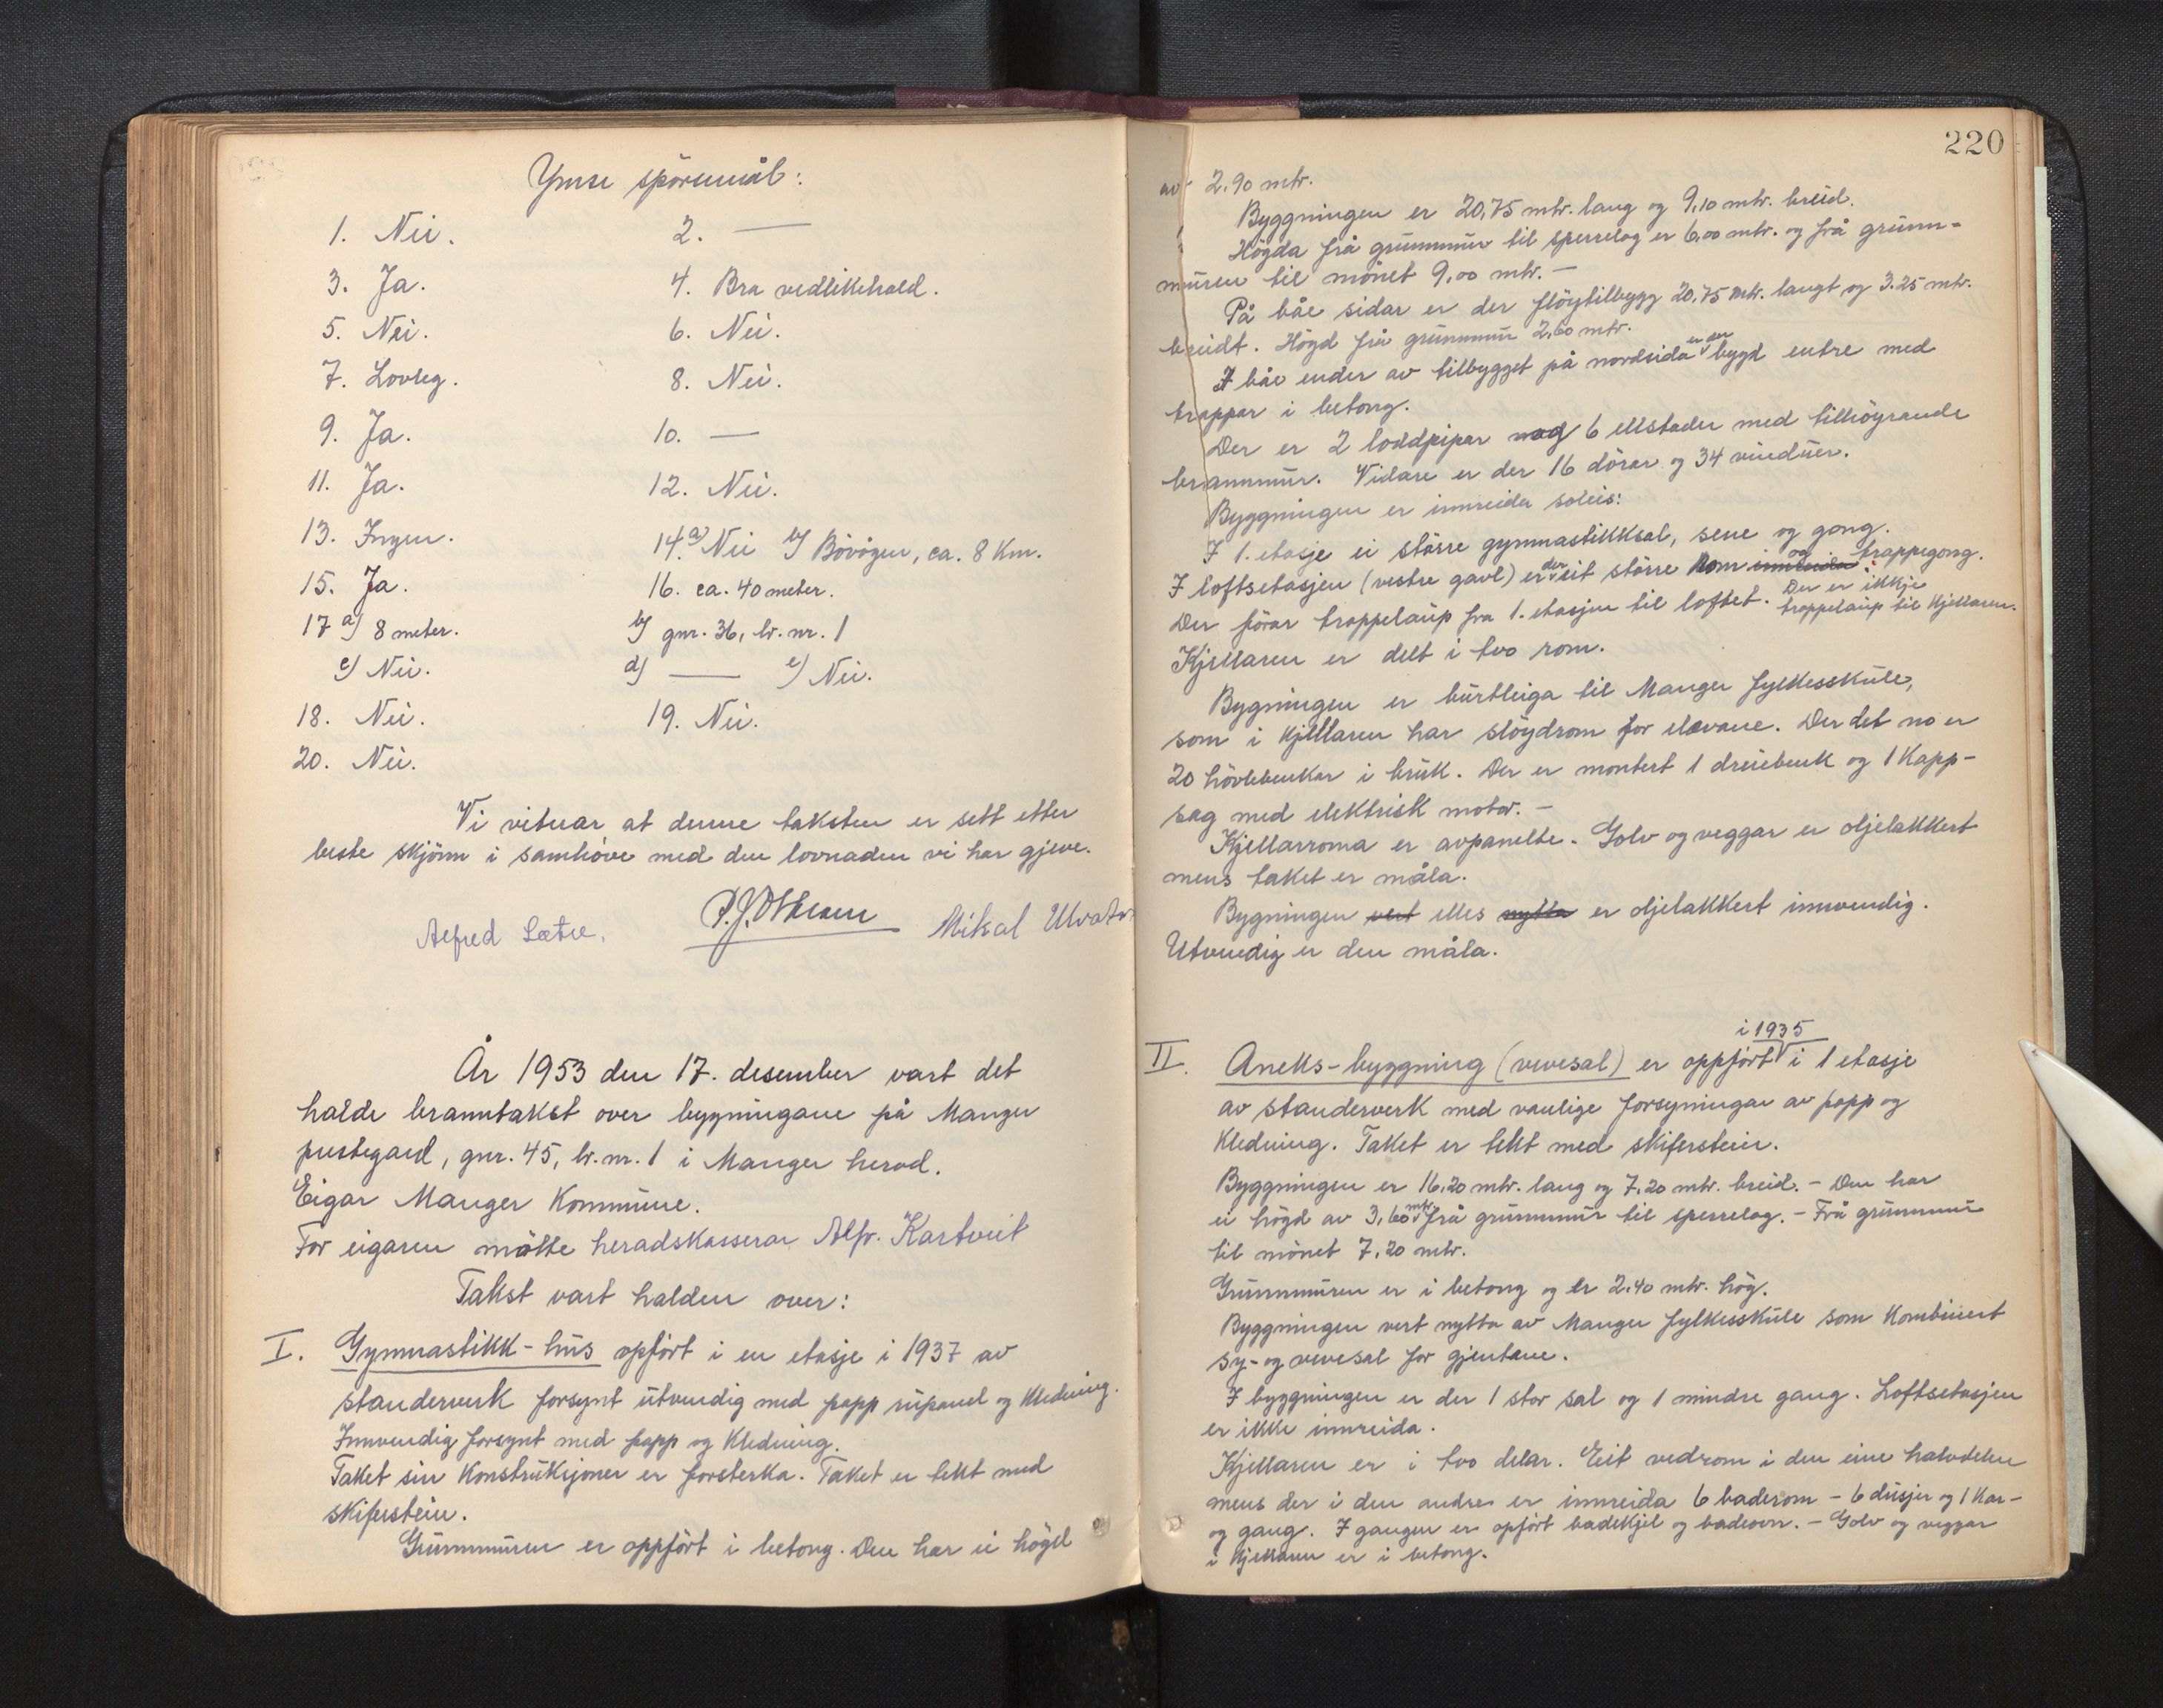 Ymse spörsmål:
1. Nei. 2. —
3. Ja. 4. Bra vedlikehald.
5. Nei. 6. Nei.
7. Lovleg. 8. Nei.
9. Ja. 10. —
11. Ja. 12. Nei.
13. Ingen. 14. a) Nei b) Bövågen, ca. 8 km.
15. Ja. 16. ca. 40 meter.
17 a) 8 meter. b) gnr. 36, br. nr. 1
c) Nei. d) — e) Nei.
18. Nei. 19. Nei.
20. Nei.
Vi vitnar at denne taksten er sett etter
beste skjönn i samhöve med den lovnaden vi har gjeve.
Alfred Sætre. Mikal
År 1953 den 17. desember vart det
halde branntakst over bygningane på Manger
prestegard, gnr. 45, br. nr. 1 i Manger herad.
Eigar Manger Kommune.
For eigaren mötte heradskasserar Alfr. Kartveit
Takst vart halden over:
I. Gymnastikk-hus opfört i en etasje i 1937 av
standerverk forsynt utvendig med papp rupanel og kledning.
Innvendig forsynt med papp og kledning.
Taket sin konstruksjoner er forsterka. Taket er tekt med
skiferstein.
Grunnmuren er oppfört i betong. Den har ei högd
220
av 2.90 mtr.
Byggningen er 20,75 mtr. lang og 9,10 mtr. breid.
Högda frå grunnmur til sperrelag er 6,00 mtr. og frå grunn-
muren til mönet 9,00 mtr. —
På båe sidar er der flöytilbygg 20,75 mtr. langt og 3.25 mtr.
breidt. Högd frå grunnmur 2,60 mtr.
I båe ender av tilbygget på nordsida er der bygd entre med
trappar i betong.
Der er 2 loddpipar og 6 ellstader med tilhöyrande
brannmur. Vidare er der 16 dörar og 34 vinduer.
Byggningen er innreida soleis:
I 1. etasje ei större gymnastikksal, sene og gong.
I loftsetasjen (vestre gavl) er der eit större rom innreida og trappegong.
Der förar trappelaup fra 1. etasjen til loftet. Der er ikkje
trappelaup til kjellaren.
Kjellaren er delt i tvo rom.
Bygningen er burtleiga til Manger fylkesskule,
som i kjellaren har slöydrom for elevane. Der det no er
20 hövlebenkar i bruk. Der er montert 1 dreiebenk og 1 kapp-
sag med elektrisk motor. —
Kjellarroma er avpanelte. Golv og veggar er oljelakkert
mens taket er måla.
Bygningen vert elles nytta er oljelakkert innvendig.
Utvendig er den måla.
II. Aneks-byggning (vevesal) er oppfört i 1935 i 1 etasje
av standerverk med vanlige forsyningar av papp og
kledning. Taket er tekt med skiferstein.
Byggningen er 16,20 mtr. lang og 7,20 mtr. breid. – Den har
ei högd av 3,60 mtr. frå grunnmur til sperrelag. – Frå grunnmur
til mönet 7,20 mtr.
Grunnmuren er i betong og er 2.40 mtr. hög.
Byggningen vert nytta av Manger fylkesskule som kombinert
sy- og vevesal for gjentane.
I byggningen er der 1 stor sal og 1 mindre gang. Loftsetasjen
er ikke innreida.
Kjellaren er i tvo delar. Eit vedrom i den eine halvdelen
mens der i den andre er innreida 6 baderom – 6 dusjer og 1 kar –
og gang. I gangen er opfört badekjel og badeovn. – Golv og veggar
i kjellaren er i betong.